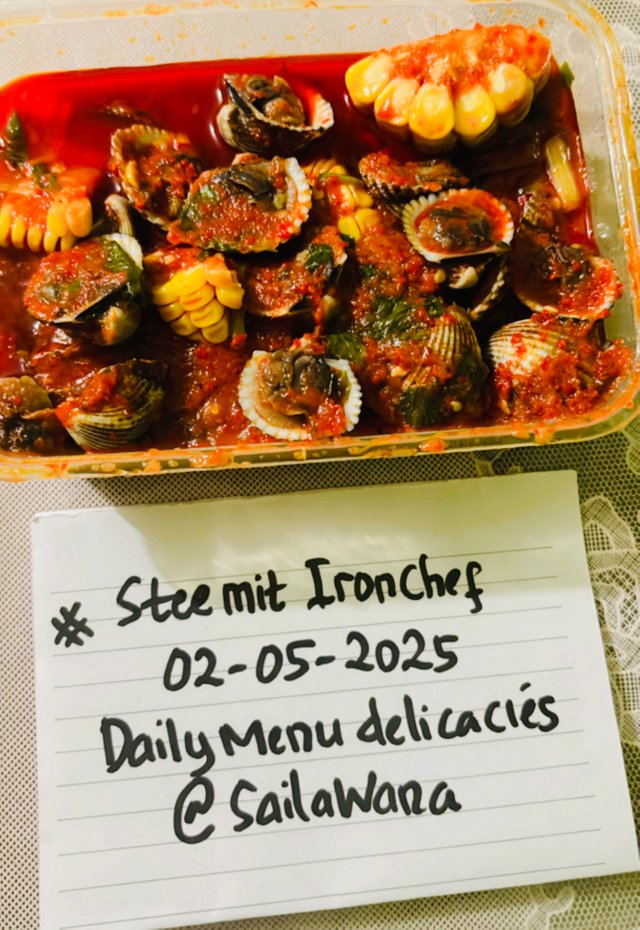 # Steemit IronChef
02-05-2025
Daily Menu delicaciés
@SailaWana